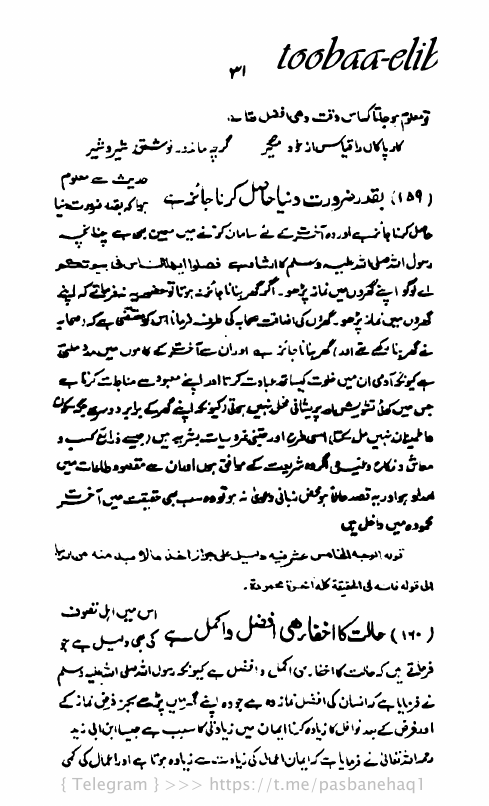 toobaa-elib
۳۱
تو معلوم ہو جاتا کہ اس وقت وہی افضل تھا۔
کار پاکاں را قیاس از خود مگیر گرچہ ماند در نوشتن شیر و شیر
(۱۵۹) بقدر ضرورت دنیا حاصل کرنا جائز ہے حدیث سے معلوم
ہوا کہ بقدر ضرورت دنیا
حاصل کرنا جائز ہے اور وہ آخرت کے لئے سامان کرنے میں معین بھی ہے چنانچہ
رسول اللہ صلی اللہ علیہ وسلم کا ارشاد ہے فصلوا ایها الناس فی بیوتکم
اے لوگو اپنے گھروں میں نماز پڑھو۔ اگر گھر بنانا جائز نہ ہوتا تو حضور یہ نہ فرماتے کہ اپنے
گھروں میں نماز پڑھو۔ گھروں کی اضافت صحابہ کی طرف فرمانا اس کو مقتضی ہے کہ صحابہ
نے گھر بنا رکھے تھے اور گھر بنانا جائز ہے اور ان سے آخرت کے کاموں میں مدد ملتی
ہے کیونکہ آدمی ان میں خلوت کیساتھ عبادت کرتا اور اپنے معبود سے مناجات کرتا ہے
جس میں کوئی تشویش اور پریشانی مخل نہیں ہوتی کیونکہ اپنے گھر کے برابر دوسری جگہ سکون
و اطمینان نہیں مل سکتا اسی طرح اور جتنی ضروریات بشریہ ہیں جیسے ذرائع کسب و
معاش و نکاح وغیرہ اگر وہ شریعت کے موافق ہوں اور ان سے مقصود طاعات میں
امداد ہو اور یہ قصد حالاً ہو محض زبانی دعویٰ نہ ہو تو وہ سب بھی حقیقت میں آخرت
محمودہ میں داخل ہیں
قوله الوجه الخامس عشر فیه دلیل علی جواز اخذ مالا بد منه من الدنیا
الی قوله فانه فی الحقیقة کله اخرة محمودة۔
(۱۶۰) حالت کا اخفار ہی افضل و اکمل ہے اس میں اہل تصوف
کی بھی دلیل ہے جو
فرماتے ہیں کہ حالت کا اخفار ہی اکمل و افضل ہے کیونکہ رسول اللہ صلی اللہ علیہ وسلم
نے فرمایا ہے کہ انسان کی افضل نماز وہ ہے جو وہ اپنے گھر میں پڑھے بجز فرض نماز کے
اور فرض کے بعد نوافل کا زیادہ کرنا ایمان میں زیادتی کا سبب ہے جیسا ابن ابی زید
رحمہ اللہ تعالیٰ نے فرمایا ہے کہ ایمان اعمال کی زیادت سے زیادہ ہوتا ہے اور اعمال کی کمی
{ Telegram } >>> https://t.me/pasbanehaq1